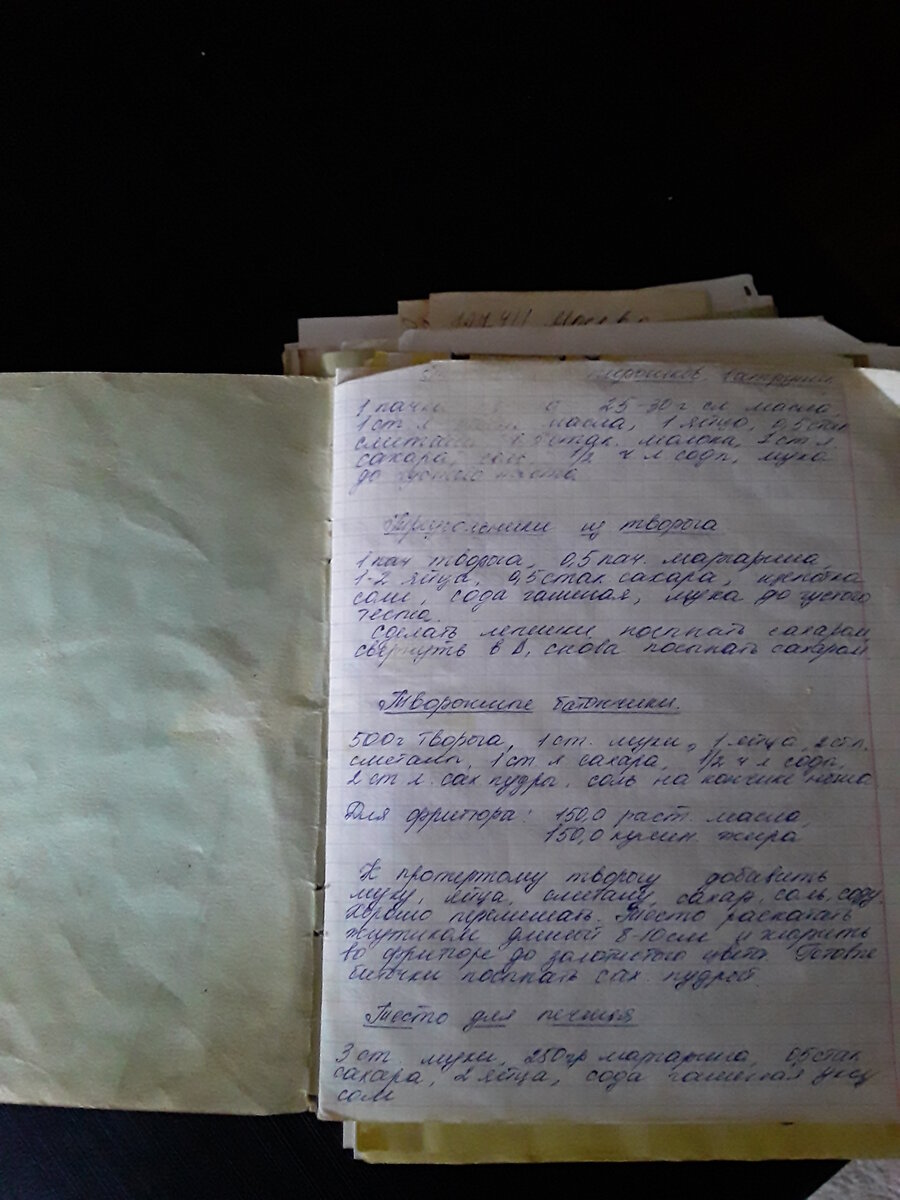 Москва
пирожков, ватрушек
1 пачка 25-30 г сл масла,
1 ст л масла, 1 яйцо, 0,5 стак
сметаны 0,5 стак. молока, 2 ст л
сахара, соль 1/2 ч л соды, мука
до густого теста
Треугольники из творога
1 пач творога, 0,5 пач. маргарина,
1-2 яйца, 0,5 стак сахара, щепотка
соли, сода гашеная, мука до густого
теста.
Сделать лепешки, посыпать сахаром,
свернуть в Δ, снова посыпать сахаром
Творожные батончики.
500 г творога, 1 ст. муки, 1 яйцо, 2 ст л.
сметаны, 1 ст л сахара, 1/2 ч л соды,
2 ст л. сах пудры, соль на кончике ножа
Для фритюра: 150,0 раст. масла,
150,0 кулин. жира
К протертому творогу добавить
муку, яйца, сметану, сахар, соль, соду,
хорошо перемешать. Тесто раскатать
жгутиком длиной 8-10 см и жарить
во фритюре до золотистого цвета. Готовые
посыпать сах. пудрой.
Тесто для печенья
3 ст. муки, 250 гр маргарина, 0,5 стак
сахара, 2 яйца, сода гашеная
соль